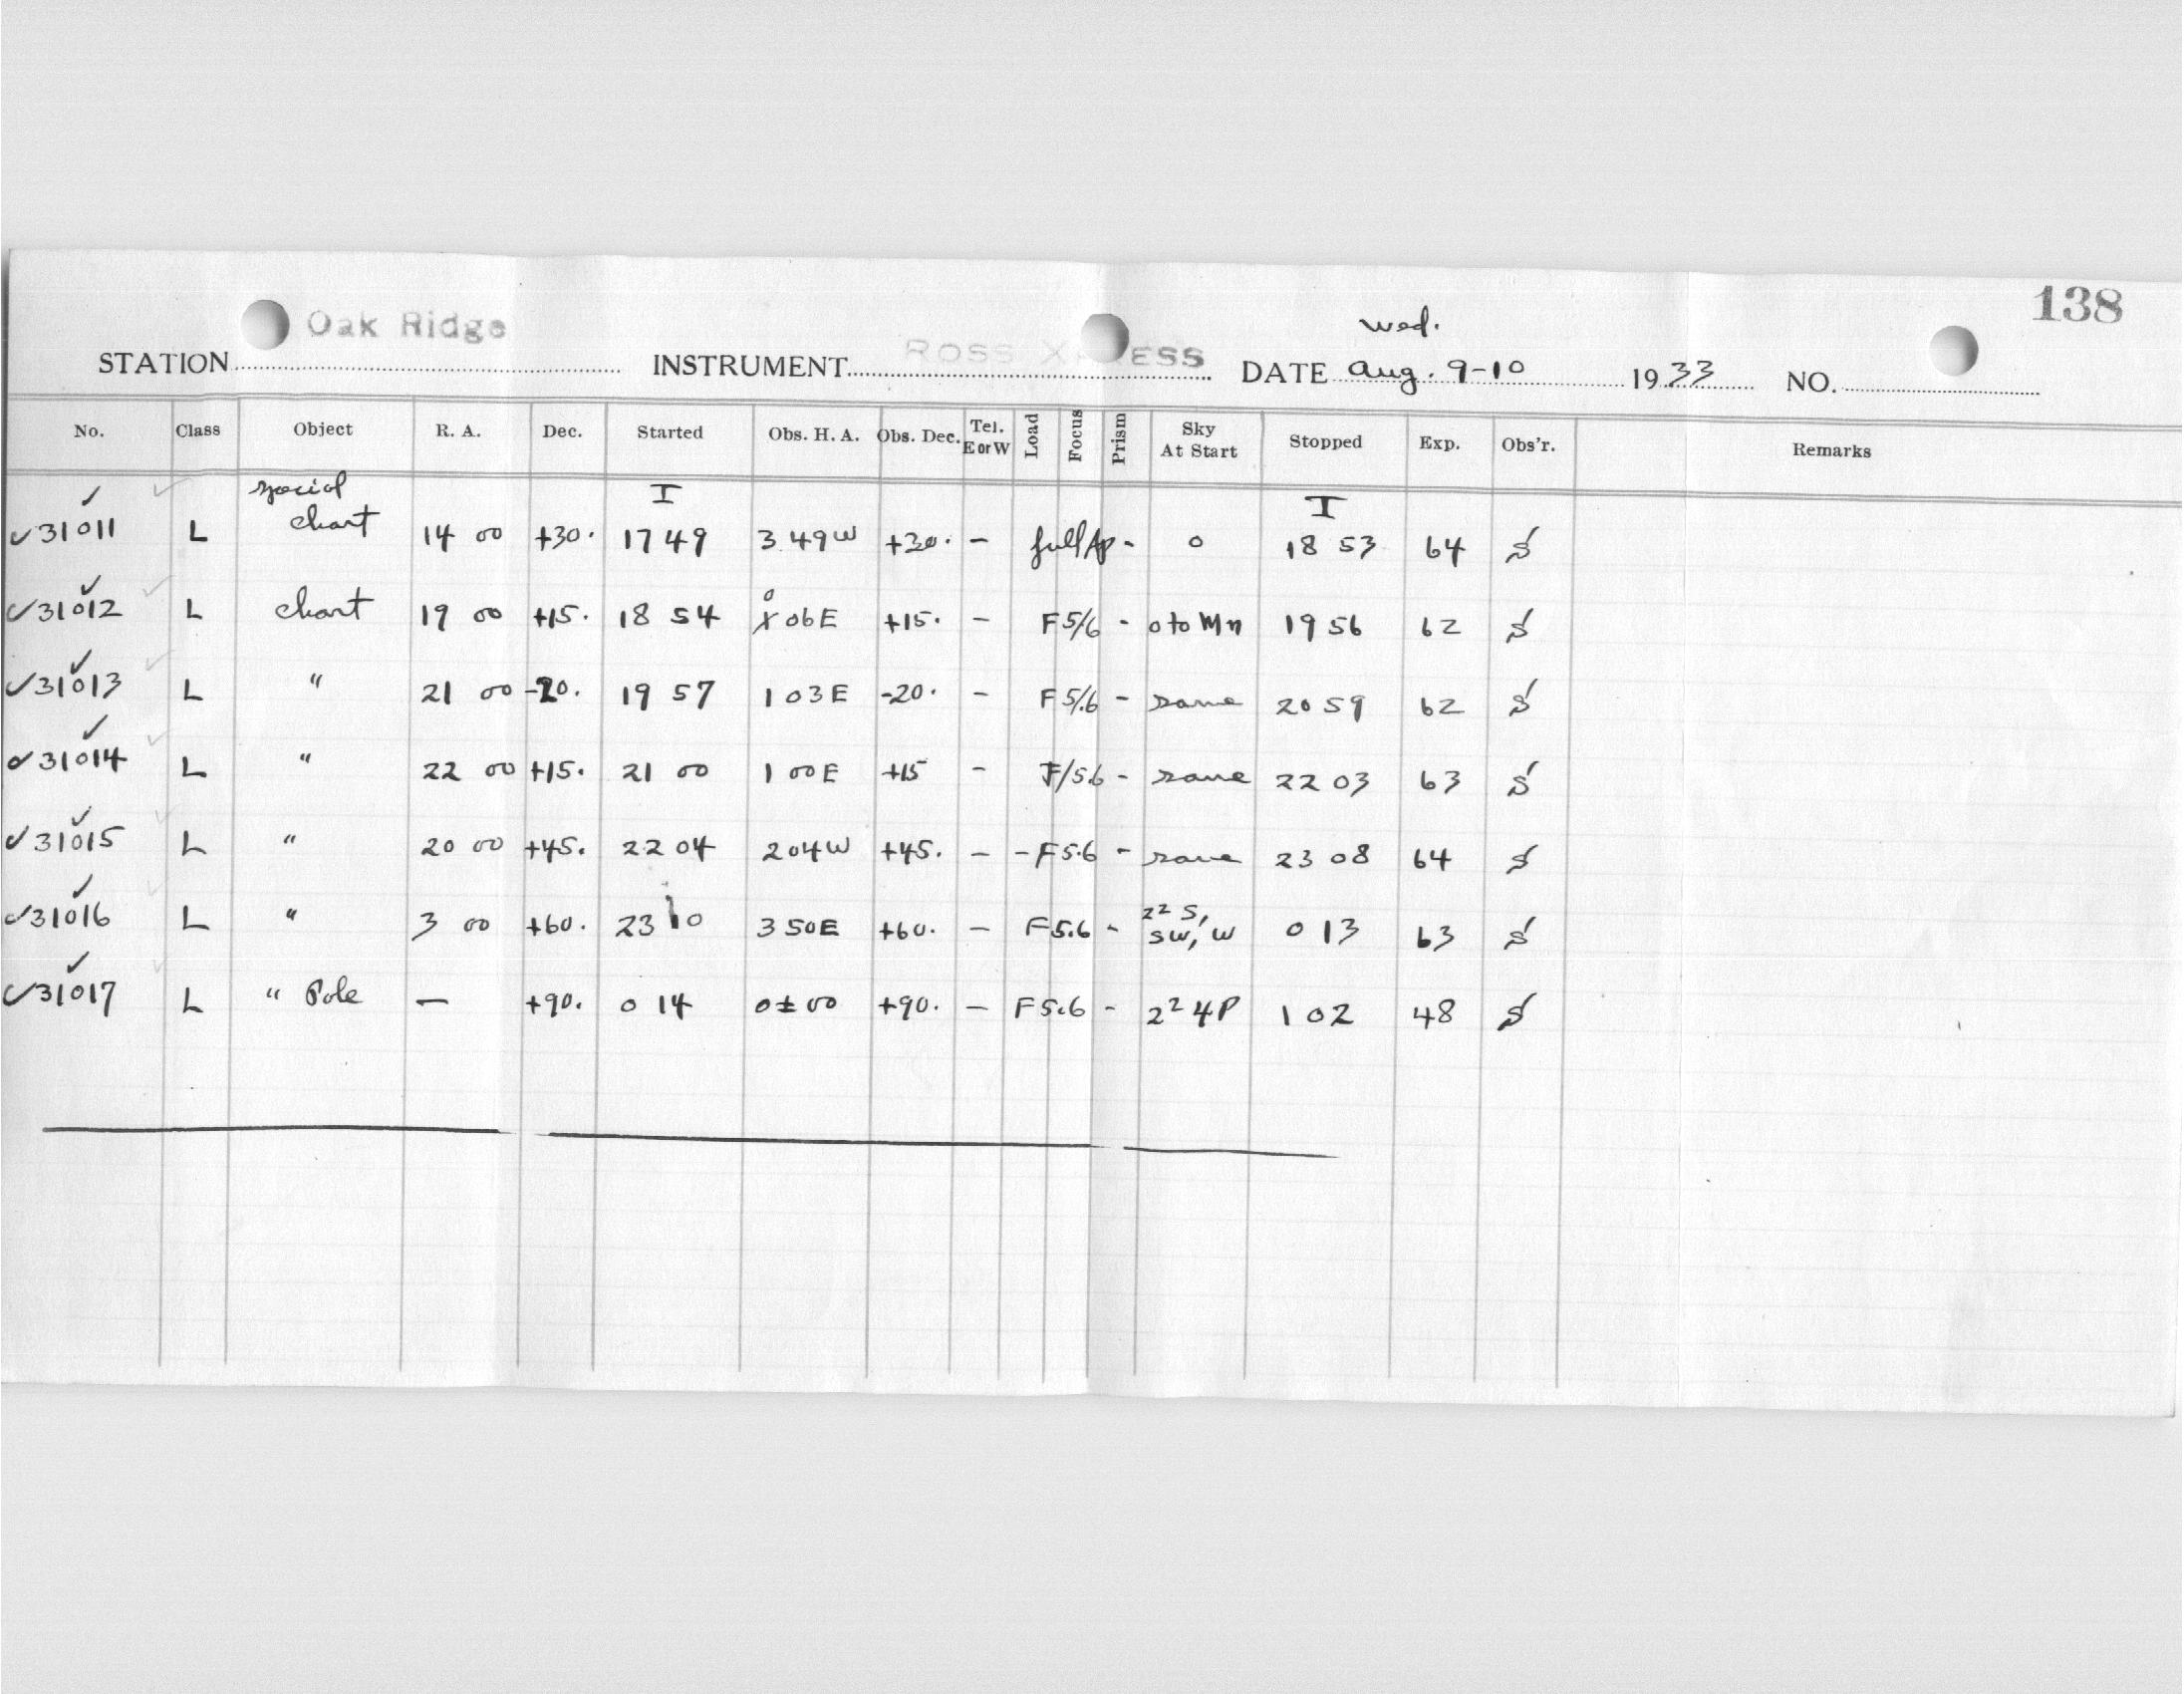 138
Oak Ridge
wed.
STATION INSTRUMENT ROSS X ESS DATE Aug. 9-10 1933 NO.
No. Class Object R. A. Dec. Started Obs. H. A. Obs. Dec. Tel. E or W Load Focus Prism Sky At Start Stopped Exp. Obs'r. Remarks
special I I
✓31011 L chart 14 00 +30. 17 49 3 49 W +30. - full Ap - 0 18 53 64 S
✓31012 L chart 19 00 +15. 18 54 0 06 E +15. - F5/6 - 0 to Mn 19 56 62 S
✓31013 L " 21 00 -20. 19 57 1 03 E -20. - F5/.6 - same 20 59 62 S
✓31014 L " 22 00 +15. 21 00 1 00 E +15 - F/5.6 - same 22 03 63 S
✓31015 L " 20 00 +45. 22 04 2 04 W +45. - - F5.6 - same 23 08 64 S
✓31016 L " 3 00 +60. 23 10 3 50 E +60. - F5.6 - 2² S, SW, W 0 13 63 S
✓31017 L " Pole — +90. 0 14 0 ± 00 +90. - F5.6 - 2² 4P 1 02 48 S